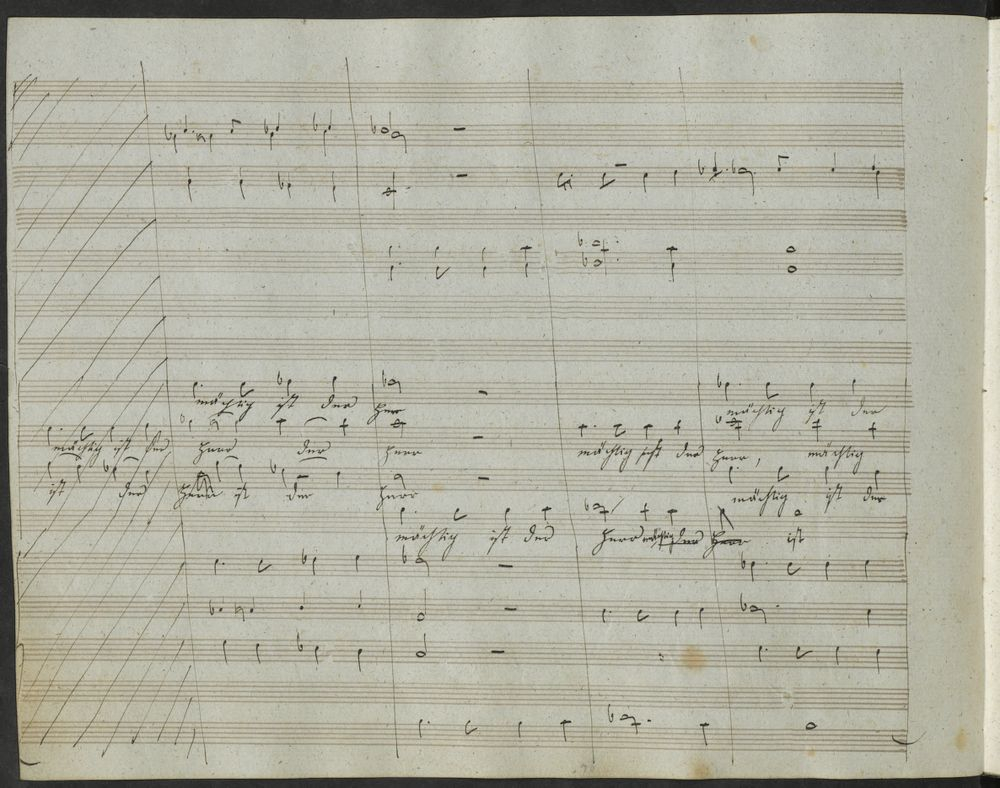 mächtig ist der Herr mächtig ist der
mächtig ist der Herr der Herr mächtig ist der Herr, mächtig
ist der Herr ist der Herr mächtig ist der
mächtig ist der Herr mächtig der Herr ist